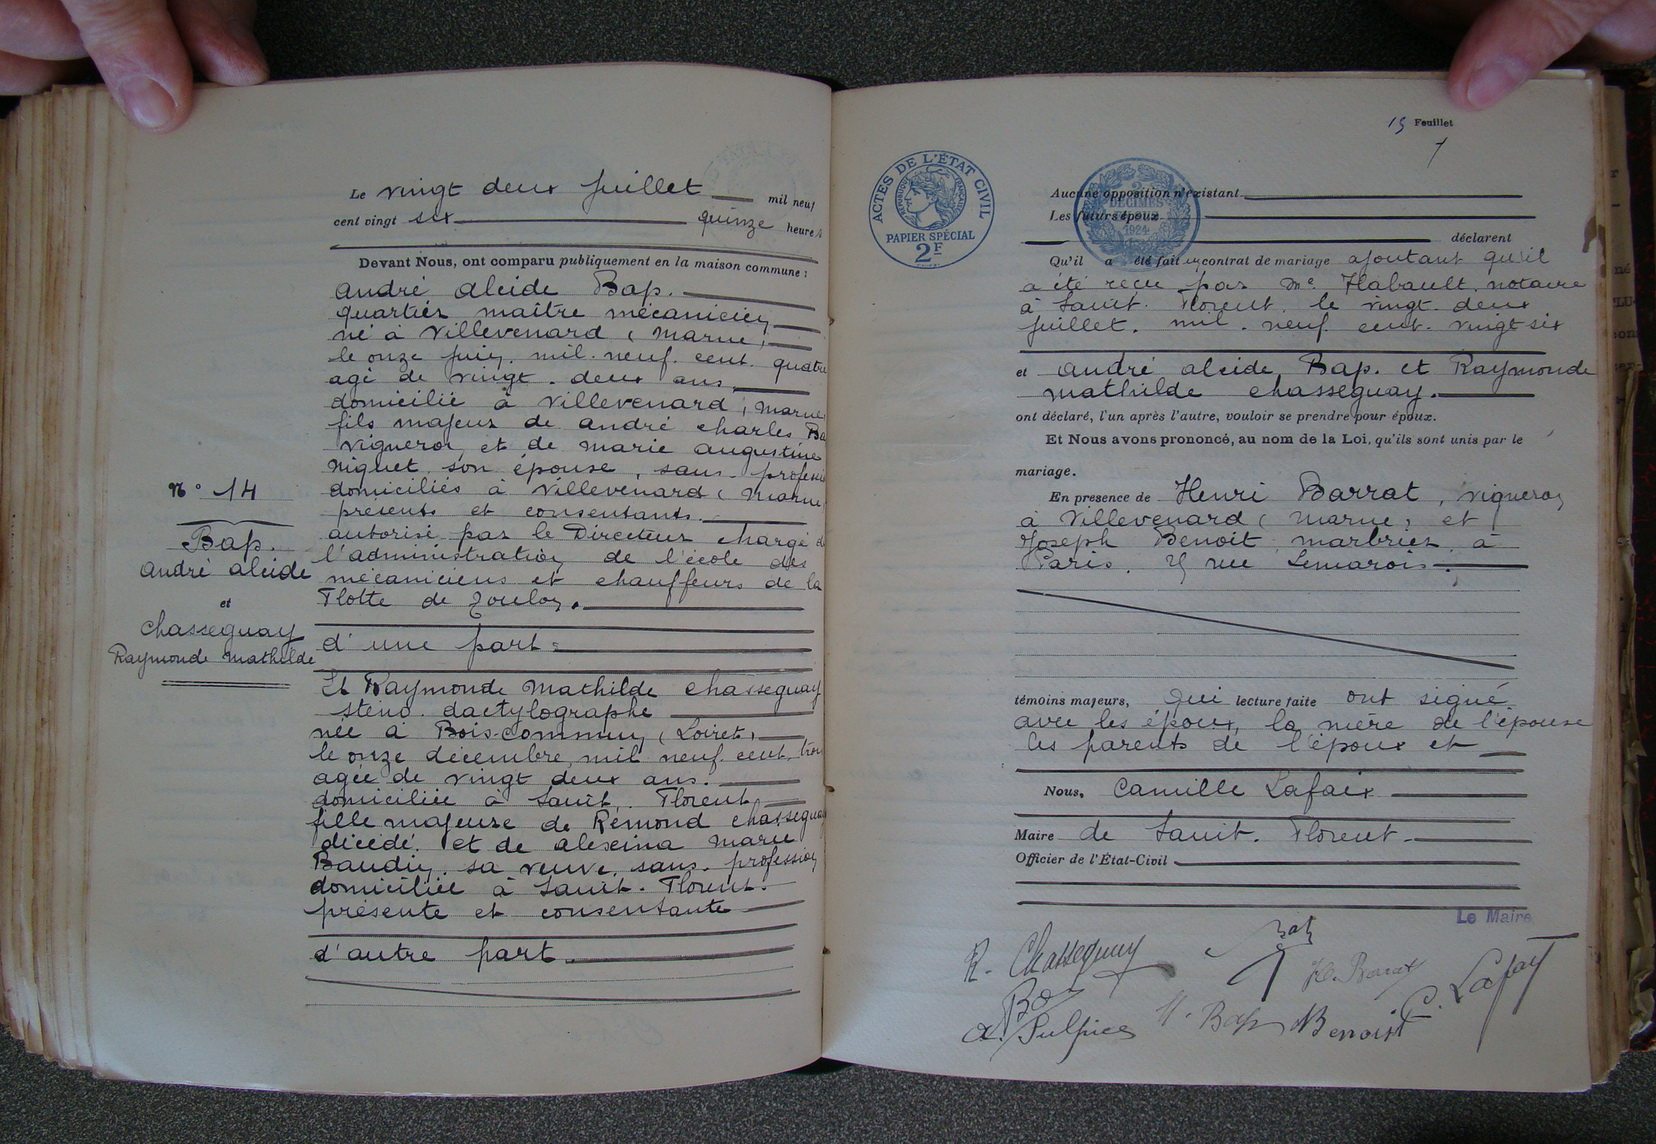 Le vingt deux juillet mil neuf
cent vingt six quinze heures
Devant Nous, ont comparu publiquement en la maison commune :
André Alcide Bap.
quartier maître mécanicien
né à Villevenard (Marne)
le onze juin mil neuf cent quatre
agé de vingt deux ans
domicilié à Villevenard, Marne
fils majeur de André Charles Ba
vigneron et de Marie Augustine
Niquet son épouse, sans professi
domiciliés à Villevenard (Marne
présents et consentants.
autorisé par le Directeur chargé d
l'administration de l'école des
mécaniciens et chauffeurs de la
Flotte de Toulon.
d'une part
N° 14
Bap.
André Alcide
et
Chasseguay
Raymonde Mathilde
Et Raymonde Mathilde Chasseguay
sténo. dactylographe
née à Bois-Commun (Loiret)
le onze décembre mil neuf cent trois
agée de vingt deux ans.
domiciliée à Saint. Florent
fille majeure de Rémond Chasseguay
décédé. et de Alexina Marie
Baudin, sa veuve, sans profession
domiciliée à Saint. Florent.
présente et consentante
d'autre part.
15 Feuillet
ACTES DE L'ÉTAT CIVIL
RÉPUBLIQUE FRANÇAISE
PAPIER SPÉCIAL
2F
2
DÉCIMES
1924
Aucune opposition n'existant
Les futurs époux
déclarent
Qu'il a été fait un contrat de mariage ajoutant qu'il
a été reçu par Me Habault. notaire
à Saint. Florent. le vingt. deux
juillet. mil. neuf. cent. vingt six
et André Alcide Bap. et Raymonde
Mathilde Chasseguay.
ont déclaré, l'un après l'autre, vouloir se prendre pour époux.
Et Nous avons prononcé, au nom de la Loi, qu'ils sont unis par le
mariage.
En présence de Henri Barrat, vigneron
à Villevenard (Marne) et
Joseph Benoit marbrier à
Paris. rue Lemarois.
témoins majeurs, qui lecture faite ont signé
avec les époux, la mère de l'épouse
les parents de l'époux et
Nous, Camille Lafaix
Maire de Saint. Florent.
Officier de l'État-Civil
Le Maire
R. Chasseguay
H. Barrat
C. Lafaix
Bap
A. Sulpice
Bap
Benoist